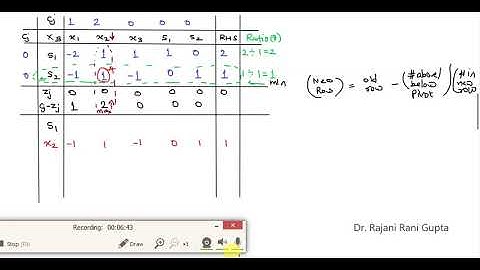 Cj 1 2 0 0 0
CB XB x₁ x₂ x₃ s₁ s₂ RHS Ratio(θ)
0 s₁ -2 1 1 1 0 2 2÷1=2
0 s₂ -1 1 -1 0 1 1 1÷1=1 min
Zj 0 0 0 0 0 0
Cj-Zj 1 2 max 0 0 0
s₁
x₂ -1 1 -1 0 1 1
(New Row) = old row - (# above below pivot) (# in new row)
Dr. Rajani Rani Gupta
Recording: 00:06:43
Stop Draw x1